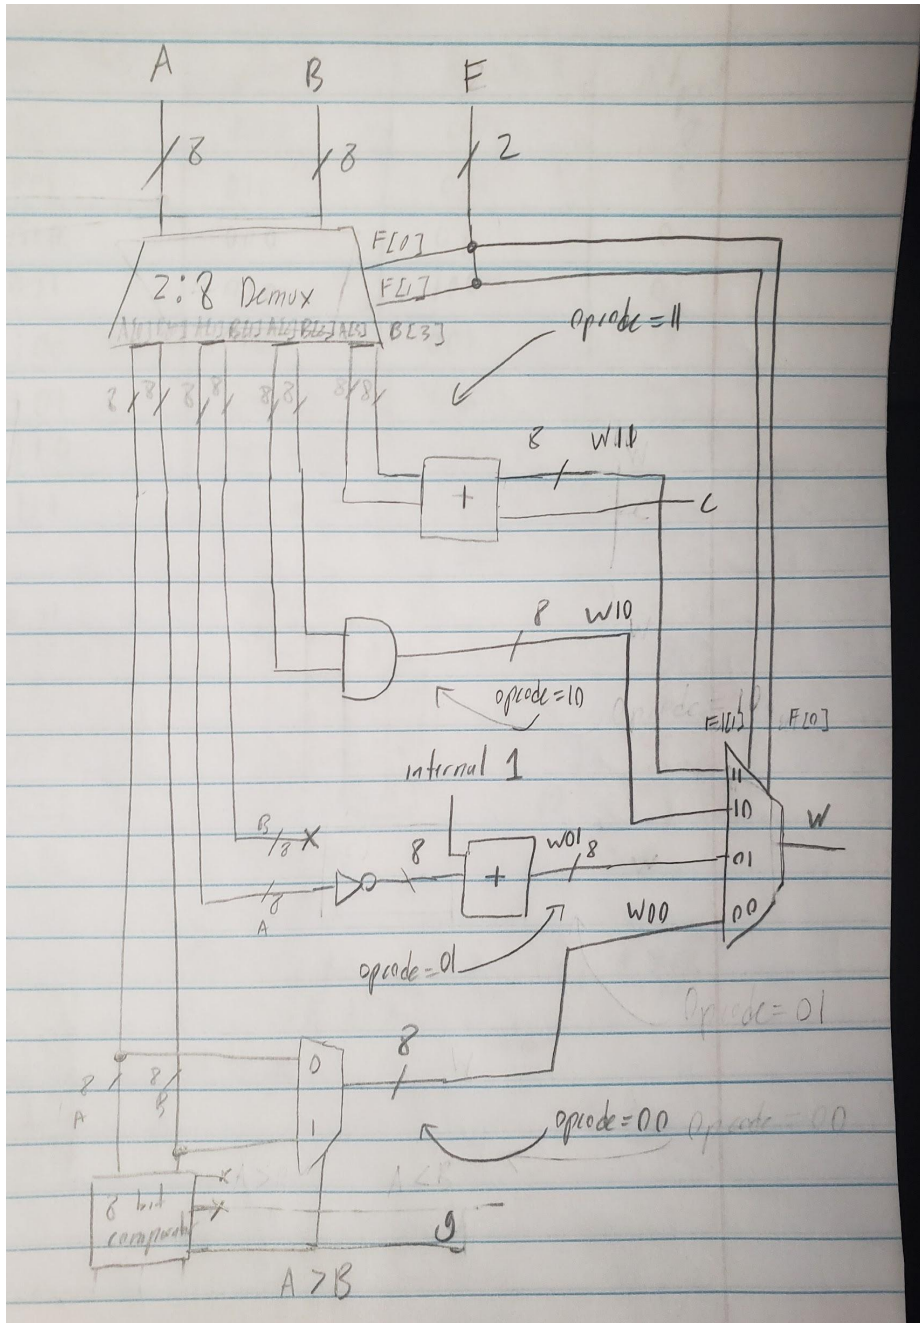 A B F
8 8 2
F[0]
2:8 Demux F[1]
B[1] A[2] B[2] A[3] B[3]
opcode=11
8 8 8 8 8 8 8 8
8 W11
+ C
8 W10
opcode=10
F[1] F[0]
internal 1
11
10
W
B 8 X
8 W01 8
+ 01
8
A
W00 00
opcode=01
Opcode=01
8
0
8 8
A B
1
opcode=00 Opcode=00
X A> A<B
8 bit X
comparator
g
A>B